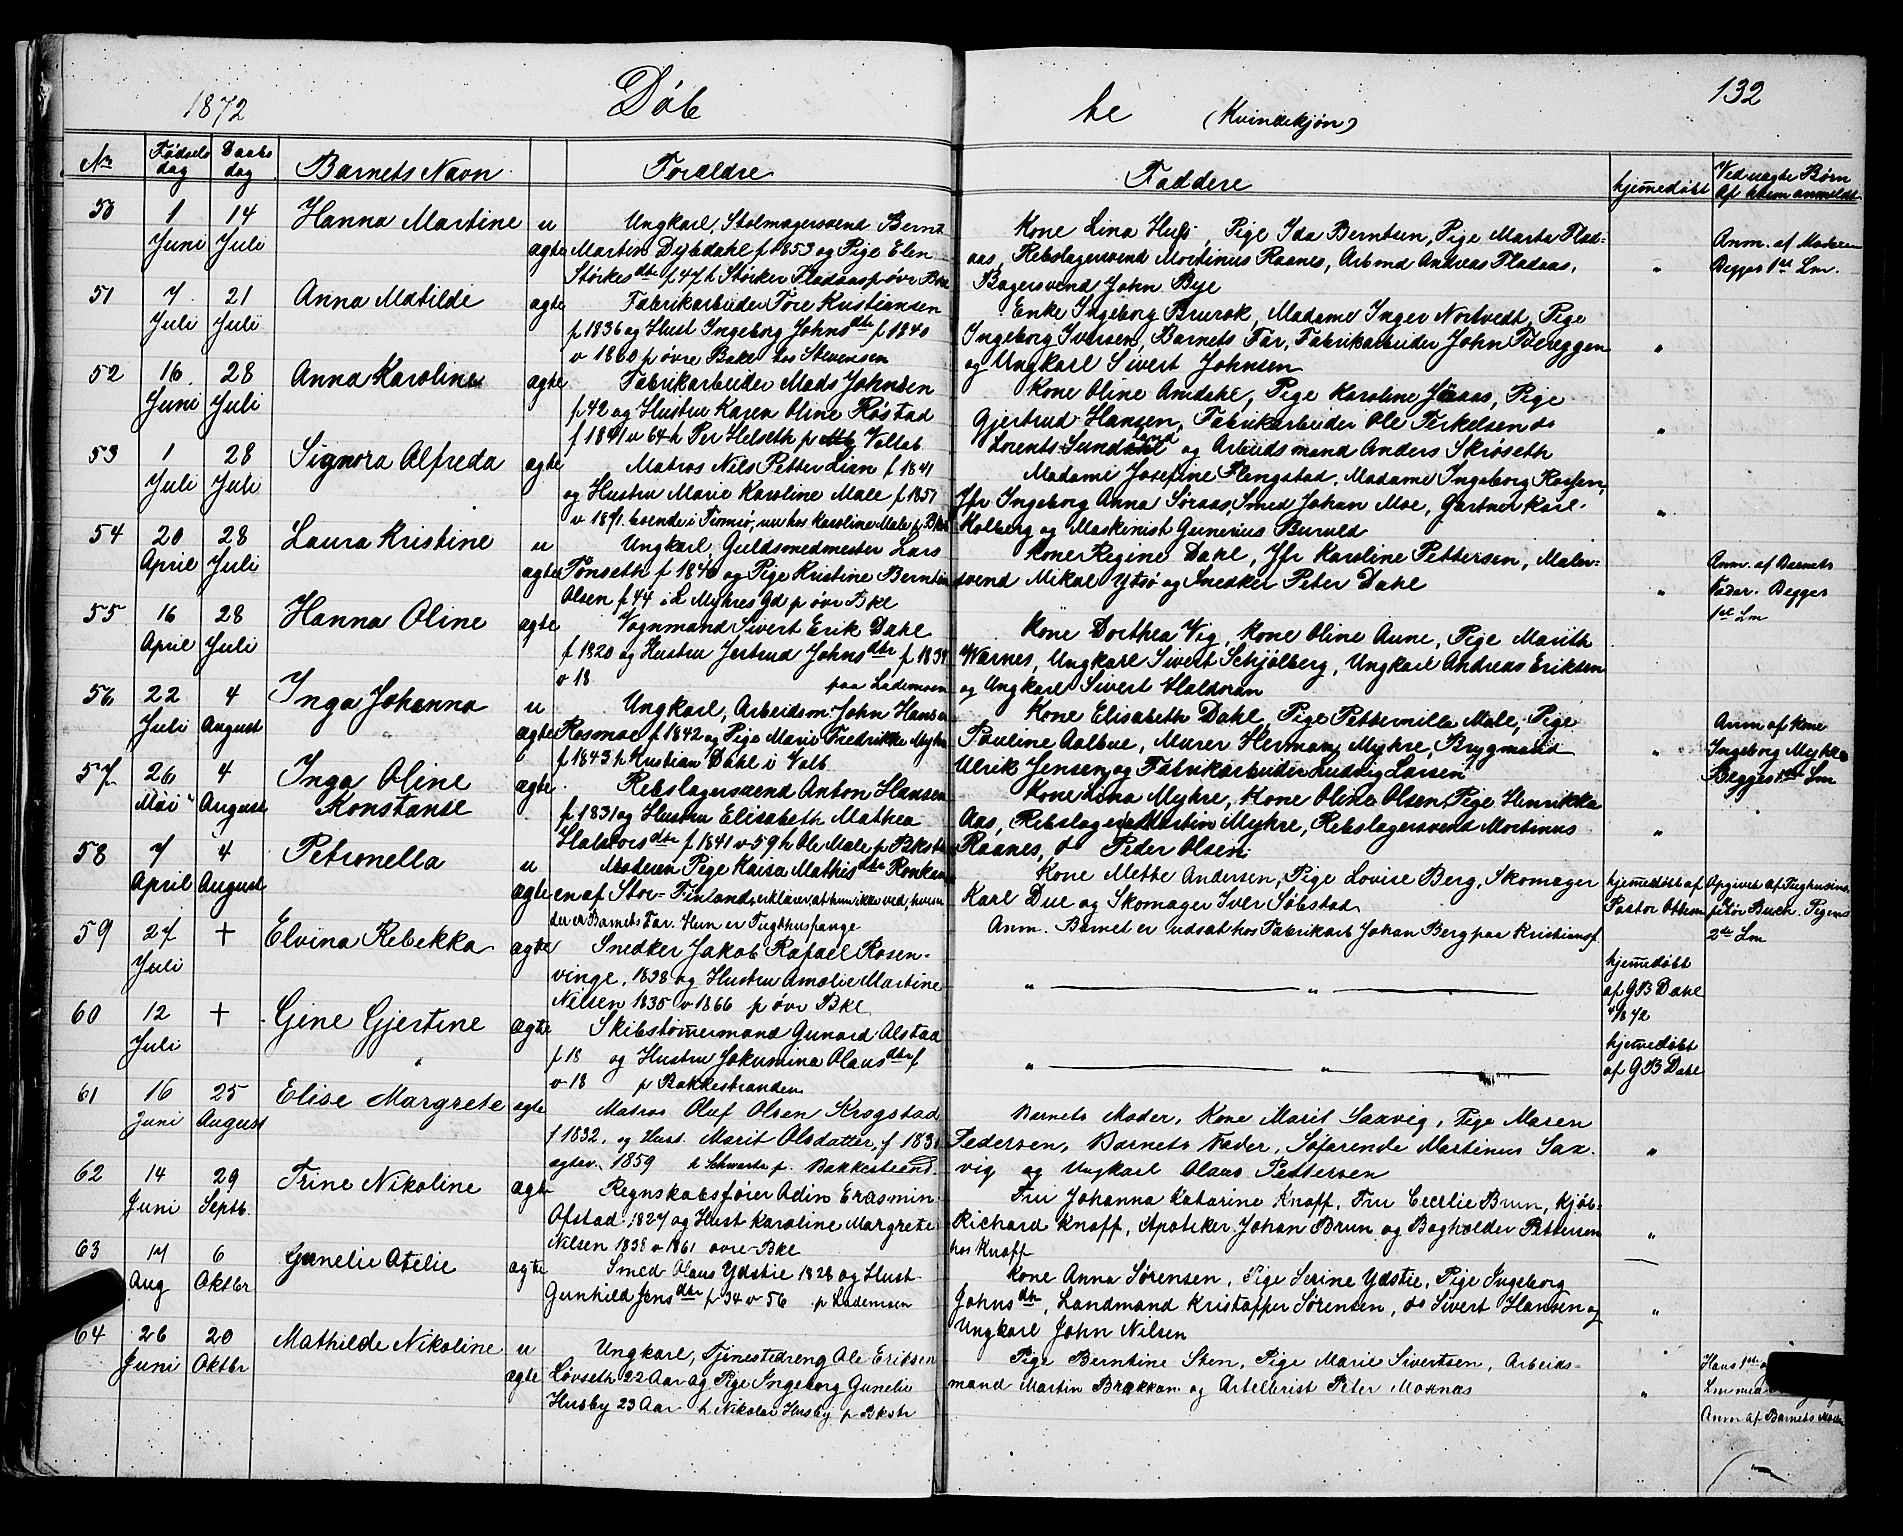 1872 Døb be (Kvindekjøn) 132
No Fødsels dag Daabs dag Barnets Navn Forældre Faddere hjemmedøbt Ved uægte Børn af hvem anmeldt
50 1 Juni 14 Juli Hanna Martine u ægte
Ungkarl, Stolmagersvend Bernt
Martin Dybdahl f 1853 og Pige Elen
Størkesdtr f 47 h Størker Fladaas p øvr Bkl
Kone Lina Huss, Pige Ida Berntsen, Pige Marta Flad-
aas, Rebslagersvend Mortinus Raanes, Arbmd Andreas Fladaas,
Bagersvend John Bye
"
Anm. af Moderen
Begges 1st Lm.
51 7 Juli 21 Juli Anna Matilde ægte
Fabrikarbeider Tore Kristiansen
f 1836 og Hust Ingeborg Johnsdtr f 1840
v 1860 p øvre Bakl hos Stevensen
Enke Ingeborg Brurok, Madame Inger Nortvedt, Pige
Ingeborg Iversen, Barnets Far, Fabrikarbeider John
og Ungkarl Sivert Johnsen
"
52 16 Juni 28 Juli Anna Karoline ægte
Fabrikarbeider Mads Johnsen
f 42 og Hustru Karen Oline Røstad
f 1841 v 64 h Per Helseth p Voltab
Kone Oline Amdahl, Pige Karoline Pige
Gjertrud Hansen, Fabrikarbeider Ole Terkelsen do
Lorents Sundland og Arbeidsmand Anders Skjøseth
"
53 1 Juli 28 Juli Signora Alfreda ægte
Matros Nils Petter Lian f 1841
og Hustru Marie Karoline Male f 1851
v 1871. boende i Tromsø, nu hos Karoline Male p Bkst
Madame Josefine Flengstad, Madame Ingeborg
Jfr Ingeborg Anna Søraas, Smed Johan Moe, Gartner Karl
Kolberg og Maskinist Gunerius Buruld
"
54 20 April 28 Juli Laura Kristine u ægte
Ungkarl, Guldsmedmester Lars
Tønseth f 1840 og Pige Kristine Berntine
Olsen f 44 i L Myhres Gd p øvr Bkl
Kone Regine Dahl, Jfr Karoline Pettersen, Maler-
svend Mikal Ytsø og Snedker Peter Dahl
"
Anm. af Barnets
Fader. Begges
1st Lm
55 16 April 28 Juli Hanna Oline ægte
Vognmand Sivert Erik Dahl
f 1820 og Hustru Jertrud Johnsdtr f 1834
v 18 paa Lademoen
Kone Dorthea Vig, Kone Oline Aune, Pige Marith
Warnes, Ungkarl Sivert Schjølberg, Ungkarl Andreas Eriksen
og Ungkarl Sivert Haldoran
56 22 Juli 4 August Inga Johanna u ægte
Ungkarl, Arbeidsm John Hansen
Rosmoe f 1842 og Pige Marie Fredrikke Myhre
f 1843 h Kristian Dahl i Volb
Kone Elisabeth Dahl, Pige Petternilla Male, Pige
Pauline Aalbue, Murer Herman Myhre, Brygmand
Ulrik Jensen og Fabrikarbeider Ludvig Larsen
"
Anm af Kone
Ingeborg Myhre
Begges 1ste Lm
57 26 Mai 4 August Inga Oline Konstanse ægte
Rebslagersvend Anton Hansen
f 1831 og Hustru Elisabeth Mathea
Halvorsdtr f 1841 v 59 h Ole Male p Bkstr
Kone Lina Myhre, Kone Oline Olsen, Pige Henrikka
Aas, Rebslager Martin Myhre, Rebslagersvend Mortinus
Raanes, do Peder Olsen
"
58 7 April 4 August Petronella u ægte
Moderen Pige Kaisa Mathisdtr Ronkan
en af Stor-Finland, erklærer, at hun ikke ved, hvem
der er Barnets Far. Hun er Tugthusfange
Kone Mette Andersen, Pige Lovise Berg, Skomager
Karl Due og Skomager Iver Søbstad
Anm. Barnet er udsat hos Fabrikarb Johan Berg paa Kristiansf.
hjemmedøbt af
Pastor Ottem
Opgivet af Tugthusins
pktør Buch. Pigens
2det Lm
59 27 Juli + Elvina Rebekka ægte
Snedker Jakob Rafael Rosen-
vinge, 1838 og Hustru Amalie Martine
Nilsen 1835 v 1866 p øvr Bkl
" "
hjemmedøbt
af GB Dahl
1872
60 12 Juli + Gine Gjertine ægte
Skibstømmermand Gunard Alstad
f 18 og Hustru Jokumina Olausdtr f
v 18 p Bakkestranden
" "
hjemmedøbt
af GB Dahl
61 16 Juni 25 August Elise Margrete ægte
Matros Oluf Olsen Krogstad
f 1832, og Hust. Marit Olsdatter, f 183
ægtev. 1859 h Schwartz p. Bakkestrand.
Barnets Moder, Kone Marit Saxvig, Pige Maren
Pedersen, Barnets Fader, Søfarende Martinus Sax
vig og Ungkarl Olaus Pettersen
"
62 14 Juni 29 Septb. Trine Nikoline ægte
Regnskabsfører Odin Erasmin
Ofstad 1827 og Hust Karoline Margrete
Nilsen 1838 v 1861 øvre Bkl
Fru Johanna Katarine Knoff, Fru Cecilie Brun, Kjøb-
Richard Knoff, Apotiker Johan Brun og Bogholder Pettersen
hos Knoff
"
63 17 Aug 6 Oktbr Gunelie Atelie ægte
Smed Olaus Ydstie 1828 og Hust
Gunhild Jensdtr f 34 v 56 p Lademoen
Kone Anna Sørensen, Pige Serine Ydstie, Pige Ingeborg
Johnsdtr, Landmand Kristoffer Sørensen, do Sivert Hansen og
Ungkarl John Nilsen
"
64 26 Juni 20 Oktbr Mathilde Nikoline u ægte
Ungkarl, Tjenestedreng Ole Eriksen
Løvseth 22 Aar og Pige Ingeborg Gunelie
Husby 23 Aar h Nikolai Husby p Bkstr
Pige Berntine Sten, Pige Marie Sivertsen, Arbeids-
mand Martin Brækkan og Artellerist Peter Moxnas
"
Hans 1st
Lm
Anm af Barnets Moder